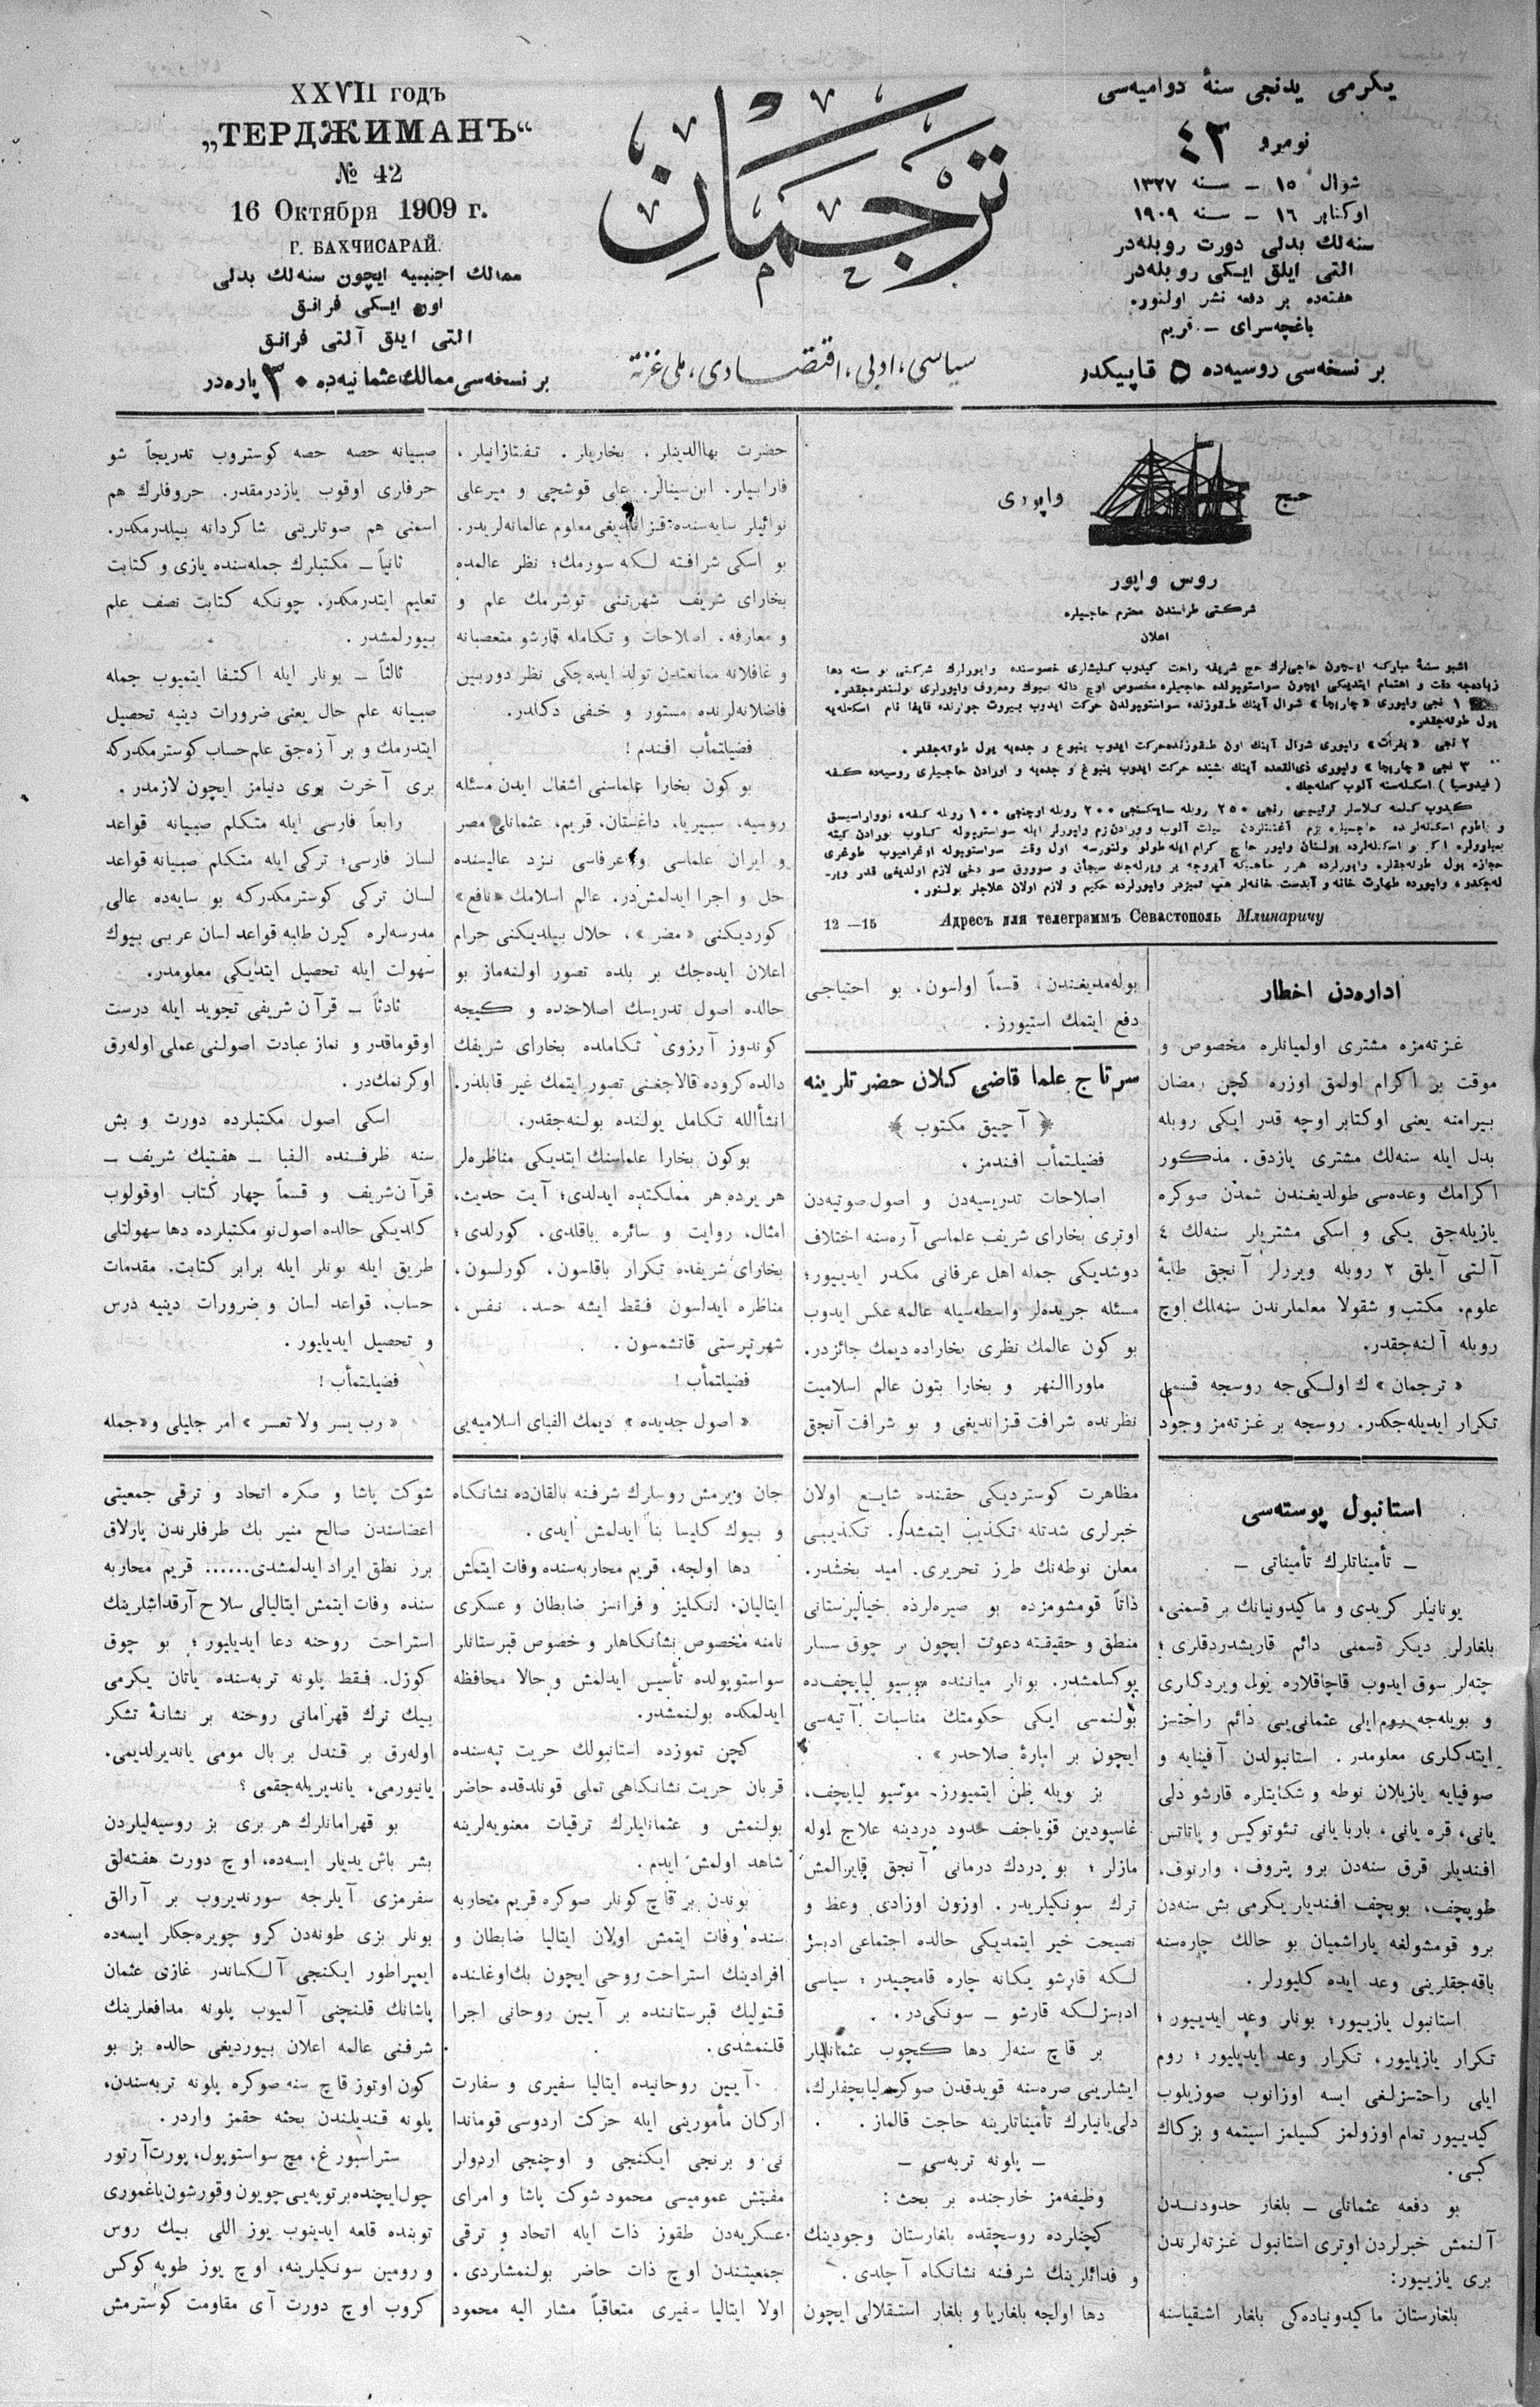 XXVII годъ
„ТЕРДЖИМАНЪ“
№ 42
16 Октября 1909 г.
Г. БАХЧИСАРАЙ.
ممالك اجنبیه ایچون سنه‌لك بدلی
اون ایكی فرانق
التی ایلق آلتی فرانق
بر نسخه‌سی ممالك عثمانیه‌ده ۳۰ پاره‌در
ترجمان
سیاسی، ادبی، اقتصادی، ملی غزته
یكرمی یدنجی سنهٔ دوامیه‌سی
نومرو ٤۲
شوال ۱٥ – سنه ۱۳۲۷
اوكتابر ۱٦ – سنه ۱۹۰۹
سنه‌لك بدلی دورت روبله‌در
التی ایلق ایكی روبله‌در
هفته‌ده بر دفعه نشر اولنور.
باغچه‌سرای – قریم
بر نسخه‌سی روسیه‌ده ٥ قاپیكدر
حج واپوری
روس واپور
شركتی طرفندن محترم حاجیلره
اعلان
12 —15 Адресъ для телеграммъ Севастополь Млинаричу
اداره‌دن اخطار
غزته‌مزه مشتری اولمیانلره مخصوص و
موقت بر اكرام اولمق اوزره كچن رمضان
بیرامنه یعنی اوكتابر اوچه قدر ایكی روبله
بدل ایله سنه‌لك مشتری یازدق. مذكور
اكرامك وعده‌سی طولدیغندن شمدن صوكره
یازیله‌جق یكی و اسكی مشتریلر سنه‌لك ٤
آلتی آیلق ۲ روبله ویررلر آنجق طلبهٔ
علوم، مكتب و شقولا معلملرندن سنه‌لك اوچ
روبله آلنه‌جقدر.
« ترجمان » ك اولكی‌جه روسجه قسمی
تكرار ایدیله‌جكدر. روسجه بر غزته‌مز وجود
بوله‌مدیغندن، قسماً اولسون، بو احتیاجی
دفع ایتمك استیورز.
سرتاج علما قاضی كلان حضرتلرینه
﴿ آچیق مكتوب ﴾
فضیلتمأب افندمز ،
اصلاحات تدریسیه‌دن و اصول صوتیه‌دن
اوتری بخارای شریف علماسی آره‌سنه اختلاف
دوشدیكی جمله اهل عرفانی مكدر ایدییور؛
مسئله جریده‌لر واسطه‌سیله عالمه عكس ایدوب
بو كون عالمك نظری بخاراده دیمك جائزدر.
ماوراالنهر و بخارا بتون عالم اسلامیت
نظرنده شرافت قزاندیغی و بو شرافت آنجق
حضرت بهاالدینلر، بخاریلر، تفتازانیلر،
فارابیلر، ابن‌سینالر، علی قوشچی و میرعلی
نوائیلر سایه‌سنده قزاندیغی معلوم عالمانه‌لریدر.
بو اسكی شرافته لكه سورمك؛ نظر عالمده
بخارای شریف شهرتنی توشرمك علم و
و معارفه، اصلاحات و تكامله قارشو متعصبانه
و غافلانه ممانعتدن تولد ایده‌جكی نظر دوربین
فاضلانه‌لرنده مستور و خفی دكلدر.
فضیلتمأب افندم !
بو كون بخارا علماسنی اشغال ایدن مسئله
روسیه، سیبریا، داغستان، قریم، عثمانلی مصر
و ایران علماسی و عرفاسی نزد عالیسنده
حل و اجرا ایدلمش‌در. عالم اسلامك «نافع»
كوردیكنی «مضر»، حلال بیلدیكنی حرام
اعلان ایده‌جك بر بلده تصور اولنه‌ماز بو
حالده اصول تدریسك اصلاحنده و كیجه
كوندوز آرزوی تكاملده بخارای شریفك
دالده كروده قالاجغنی تصور ایتمك غیر قابلدر.
انشأالله تكامل یولنده بولنه‌جقدر.
بوكون بخارا علماسنك ایتدیكی مناظره‌لر
هر یرده هر مملكتده ایدلدی؛ آیت حدیث،
امثال، روایت و سائره باقلدی، كورلدی؛
بخارای شریفده تكرار باقلسون، كورلسون،
مناظره ایدلسون فقط ایشه حسد، نفس،
شهرتپرستی قاتشمسون .
فضیلتمأب !
« اصول جدیده » دیمك الفبای اسلامیه‌یی
صبیانه حصه حصه كوستروب تدریجاً شو
حرفلری اوقوب یازدرمقدر. حروفلرك هم
اسمنی هم صوتلرینی شاكردانه بیلدرمكدر.
ثانیاً – مكتبلرك جمله‌سنده یازی و كتابت
تعلیم ایتدرمكدر، چونكه كتابت نصف علم
بیورلمشدر .
ثالثاً – بونلر ایله اكتفا ایتمیوب جمله
صبیانه علم حال یعنی ضرورات دینیه تحصیل
ایتدرمك و بر آزه‌جق علم‌حساب كوسترمكدركه
بری آخرت بری دنیامز ایچون لازمدر .
رابعاً فارسی ایله متكلم صبیانه قواعد
لسان فارسی؛ تركی ایله متكلم صبیانه قواعد
لسان تركی كوسترمكدركه بو سایه‌ده عالی
مدرسه‌لره كیرن طلبه قواعد لسان عربی بیوك
سهولت ایله تحصیل ایتدیكی معلومدر.
ثادثاً – قرآن شریفی تجوید ایله درست
اوقوماقدر و نماز عبادت اصولنی عملی اوله‌رق
اوكرنمك‌در .
اسكی اصول مكتبلرده دورت و بش
سنه ظرفنده الفبا – هفتیك شریف –
قرآن‌شریف و قسماً چهار كتاب اوقولوب
كلدیكی حالده اصول‌نو مكتبلرده دها سهولتلی
طریق ایله بونلر ایله برابر كتابت، مقدمات
حساب، قواعد لسان و ضرورات دینیه درس
و تحصیل ایدیلیور .
فضیلتمأب !
« رب یسر ولا تعسر » امر جلیلی و «جمله
استانبول پوسته‌سی
– تأمیناتلرك تأمیناتی –
یونانیلر كریدی و ماكیدونیانك بر قسمنی،
بلغارلر دیكر قسمنی دائم قاریشدردقلری؛
چته‌لر سوق ایدوب قاچاقلاره یول ویردكلری
و بویله‌جه روم‌ایلی عثمانی‌یی دائم راحتسز
ایتدكلری معلومدر. استانبولدن آفینایه و
صوفیایه یازیلان نوطه و شكایتلره قارشو دلی
یانی، قره یانی، باربا یانی تئوتوكیس و پاتاتس
افندیلر قرق سنه‌دن برو پتروف، وارنوف،
طوپچف، بوبچف افندیلر یكرمی بش سنه‌دن
برو قومشولغه یاراشمیان بو حالك چاره‌سنه
باقه‌جقلرینی وعد ایده كلیورلر .
استانبول یازییور؛ بونلر وعد ایدییور؛
تكرار یازیلیور، تكرار وعد ایدیلیور؛ روم
ایلی راحتسزلغی ایسه اوزانوب صوزیلوب
كیدییور تمام اوزولمز كسیلمز استمه و بزكك
كبی.
بو دفعه عثمانلی – بلغار حدودندن
آلنمش خبرلردن اوتری استانبول غزته‌لرندن
بری یازییور:
بلغارستان ماكیدونیاده‌كی بلغار اشقیاسنه
مظاهرت كوستردیكی حقنده شایع اولان
خبرلری شدتله تكذیب ایتمشدر. تكذیبی
معلن نوطه‌نك طرز تحریری، امید بخشدر.
ذاتاً قومشومزده بو صیره‌لرده خیالپرستانی
منطق و حقیقته دعوت ایچون بر چوق سسلر
یوكسلمشدر. بونلر میاننده موسیو لیاپچف‌ده
بولنمسی ایكی حكومتك مناسبات آتیه‌سی
ایچون بر امارهٔ صلاحدر» .
بز بویله ظن ایتمیورز. موسیو لیاپچف،
غاسپودین قویاجف حدود دردینه علاج اوله
مازلر؛ بو دردك درمانی آنجق قایرالمش
ترك سونكیلریدر. اوزون اوزادی وعظ و
نصیحت خیر ایتمدیكی حالده اجتماعی ادبسز
لكه قارشو یكانه چاره قامچیدر؛ سیاسی
ادبسزلكه قارشو – سونكی‌در.
بر قاچ سنه‌لر دها كچوب عثمانلیلر
ایشلرینی صره‌سنه قویدقدن صوكره لیاپچفلرك،
دلی‌یانیلرك تأمیناتلرینه حاجت قالماز .
– پلونه تربه‌سی –
وظیفه‌مز خارجنده بر بحث:
كچنلرده روسچقده بلغارستان وجودینك
و فدائلرینك شرفنه نشانكاه آچلدی .
دها اولجه بلغاریا و بلغار استقلالی ایچون
جان ویرمش روسلرك شرفنه بالقان‌ده نشانكاه
و بیوك كلیسا بنا ایدلمش ایدی.
دها اولجه، قریم محاربه‌سنده وفات ایتمش
ایتالیان، انكلیز و فرانسز ضابطان و عسكری
نامنه مخصوص نشانكاهلر و خصوص قبرستانلر
سواستوپولده تأسیس ایدلمش و حالا محافظه
ایدلمكده بولنمشدر.
كچن تموزده استانبولك حریت تپه‌سنده
قربان حریت نشانكاهی تملی قونلدقده حاضر
بولنمش و عثمانلیلرك ترقیات معنویه‌لرینه
شاهد اولمش ایدم.
بوندن بر قاچ كونلر صوكره قریم محاربه
سنده وفات ایتمش اولان ایتالیا ضابطان و
افرادینك استراحت روحی ایچون بك‌اوغلنده
قتولیك قبرستاننده بر آیین روحانی اجرا
قلنمشدی.
آیین روحانیده ایتالیا سفیری و سفارت
اركان مأمورینی ایله حركت اردوسی قوماندا
نی و برنجی ایكنجی و اوچنجی اردولر
مفتش عمومیسی محمود شوكت پاشا و امرای
عسكریه‌دن طقوز ذات ایله اتحاد و ترقی
جمعیتندن اوچ ذات حاضر بولنمشلردی.
اولا ایتالیا سفیری متعاقباً مشار الیه محمود
شوكت پاشا و صكره اتحاد و ترقی جمعیتی
اعضاسندن صالح منیر بك طرفلرندن پارلاق
برز نطق ایراد ایدلمشدی...... قریم محاربه
سنده وفات ایتمش ایتالیالی سلاح آرقداشلرینك
استراحت روحنه دعا ایدیلیور؛ بو چوق
كوزل. فقط پلونه تربه‌سنده یاتان یكرمی
بیك ترك قهرامانی روحنه بر نشانهٔ تشكر
اوله‌رق بر قندل بر بال مومی یاندیرلدیمی،
یانیورمی، یاندیریله‌جقمی ؟
بو قهرامانلرك هر بری بز روسیه‌لیلردن
بشر باش یدیلر ایسه‌ده، اوچ دورت هفته‌لق
سفرمزی آیلرجه سورندیروب بر آرالق
بونلر بزی طونه‌دن كرو چویره‌جكلر ایسه‌ده
ایمپراطور ایكنجی آلكساندر غازی عثمان
پاشانك قلنچنی آلمیوب پلونه مدافعلرینك
شرفنی عالمه اعلان بیوردیغی حالده بز بو
كون اوتوز قاچ سنه صوكره پلونه تربه‌سندن،
پلونه قندیلندن بحثه حقمز واردر.
ستراسبورغ، مچ سواستوپول، پورت‌آرتور
چول ایچنده بر توپه‌یی چویون و قورشون یاغموری
توبنده قلعه ایدینوب یوز اللی بیك روس
و رومین سونكیلرینه، اوچ یوز طوپه كوكس
كروب اوچ دورت آی مقاومت كوسترمش